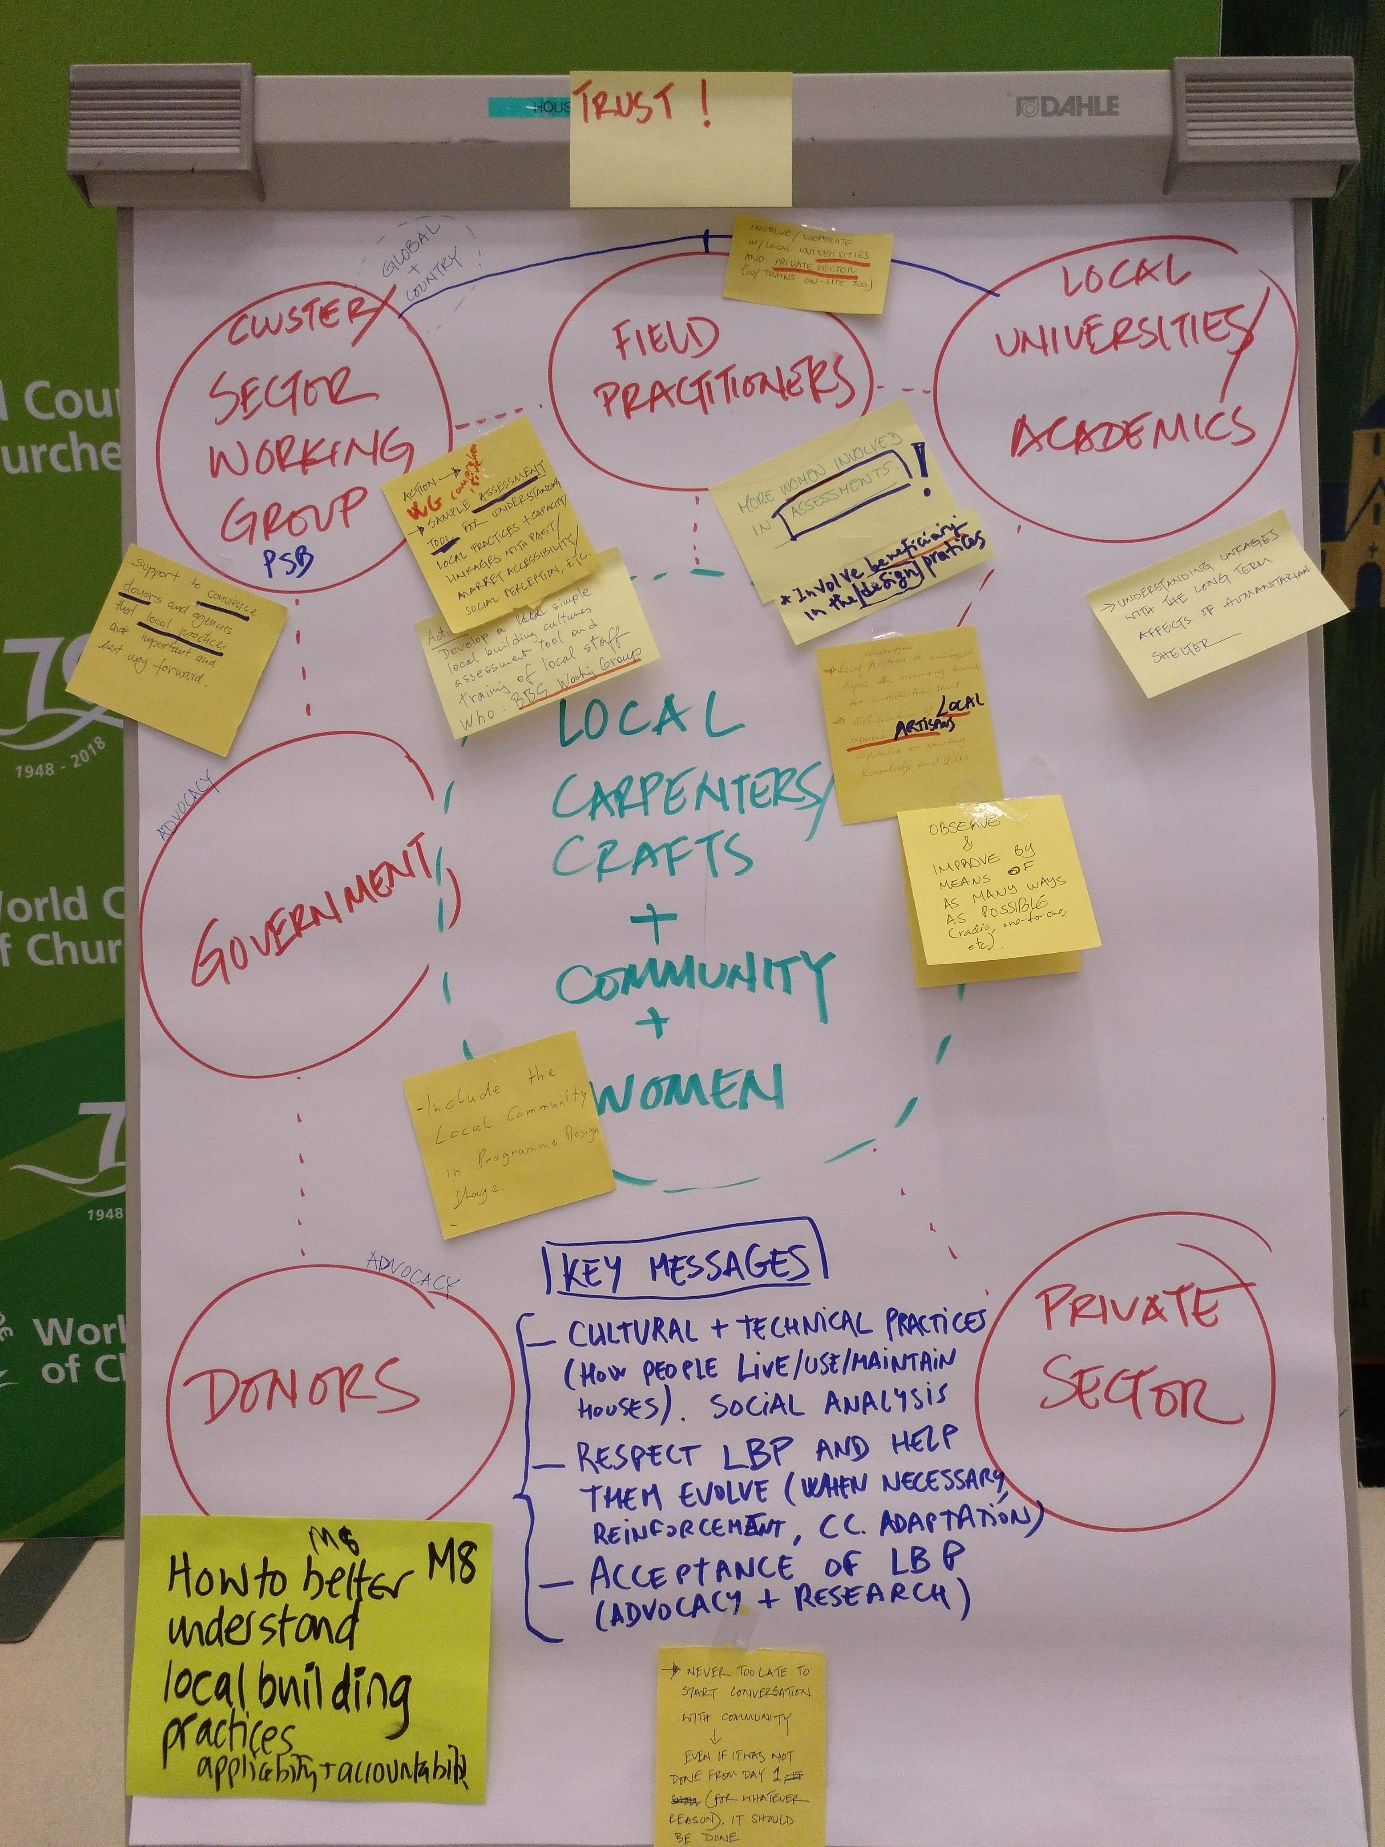 HOUS
TRUST !
DAHLE
GLOBAL
+
COUNTRY
INVOLVE / COOPERATE
W/ LOCAL UNIVERSITIES
AND PRIVATE SECTOR
(W/ TRAINS ON-SITE TOO)
CLUSTER/
SECTOR
WORKING
GROUP
PSB
FIELD
PRACTITIONERS
LOCAL
UNIVERSITIES/
ACADEMICS
ACTION →
WG
→ SAMPLE ASSESSMENT
TOOL FOR UNDERSTANDING
LOCAL PRACTICES + CAPACITY/
LINKAGES WITH PAST/
MARKET ACCESSIBILITY/
SOCIAL PERCEPTION, ETC.
MORE WOMEN INVOLVED
IN ASSESSMENTS !
* Involve beneficiary
in the/design/pratices
Support to convince
donors and agencies
that local practice
are important and
best way forward.
Develop a simple
local building cultures
assessment tool and
training of local staff
Who: BBS Working Groups
→ UNDERSTANDING LINKAGES
WITH THE LONG TERM
AFFECTS OF HUMANITARIAN
SHELTER
LOCAL
ARTISANS
knowledge and skills
OBSERVE
&
IMPROVE BY
MEANS OF
AS MANY WAYS
AS POSSIBLE
(radio, one-to-one,
etc).
ADVOCACY
GOVERNMENT
LOCAL
CARPENTERS/
CRAFTS
+
COMMUNITY
+
WOMEN
- Include the
Local Community
in Programme Design
Stage.
ADVOCACY
DONORS
PRIVATE
SECTOR
KEY MESSAGES
— CULTURAL + TECHNICAL PRACTICES
(HOW PEOPLE LIVE/USE/MAINTAIN
HOUSES). SOCIAL ANALYSIS
— RESPECT LBP AND HELP
THEM EVOLVE (WHEN NECESSARY,
REINFORCEMENT, CC. ADAPTATION)
— ACCEPTANCE OF LBP
(ADVOCACY + RESEARCH)
M8
How to better M8
understand
local building
practices
applicability + accountability
→ NEVER TOO LATE TO
START CONVERSATION
WITH COMMUNITY
↓
EVEN IF IT WAS NOT
DONE FROM DAY 1
(FOR WHATEVER
REASON), IT SHOULD
BE DONE
d Cou
urche
70
1948 - 2018
World C
of Chur
7
1948
Worl
of C